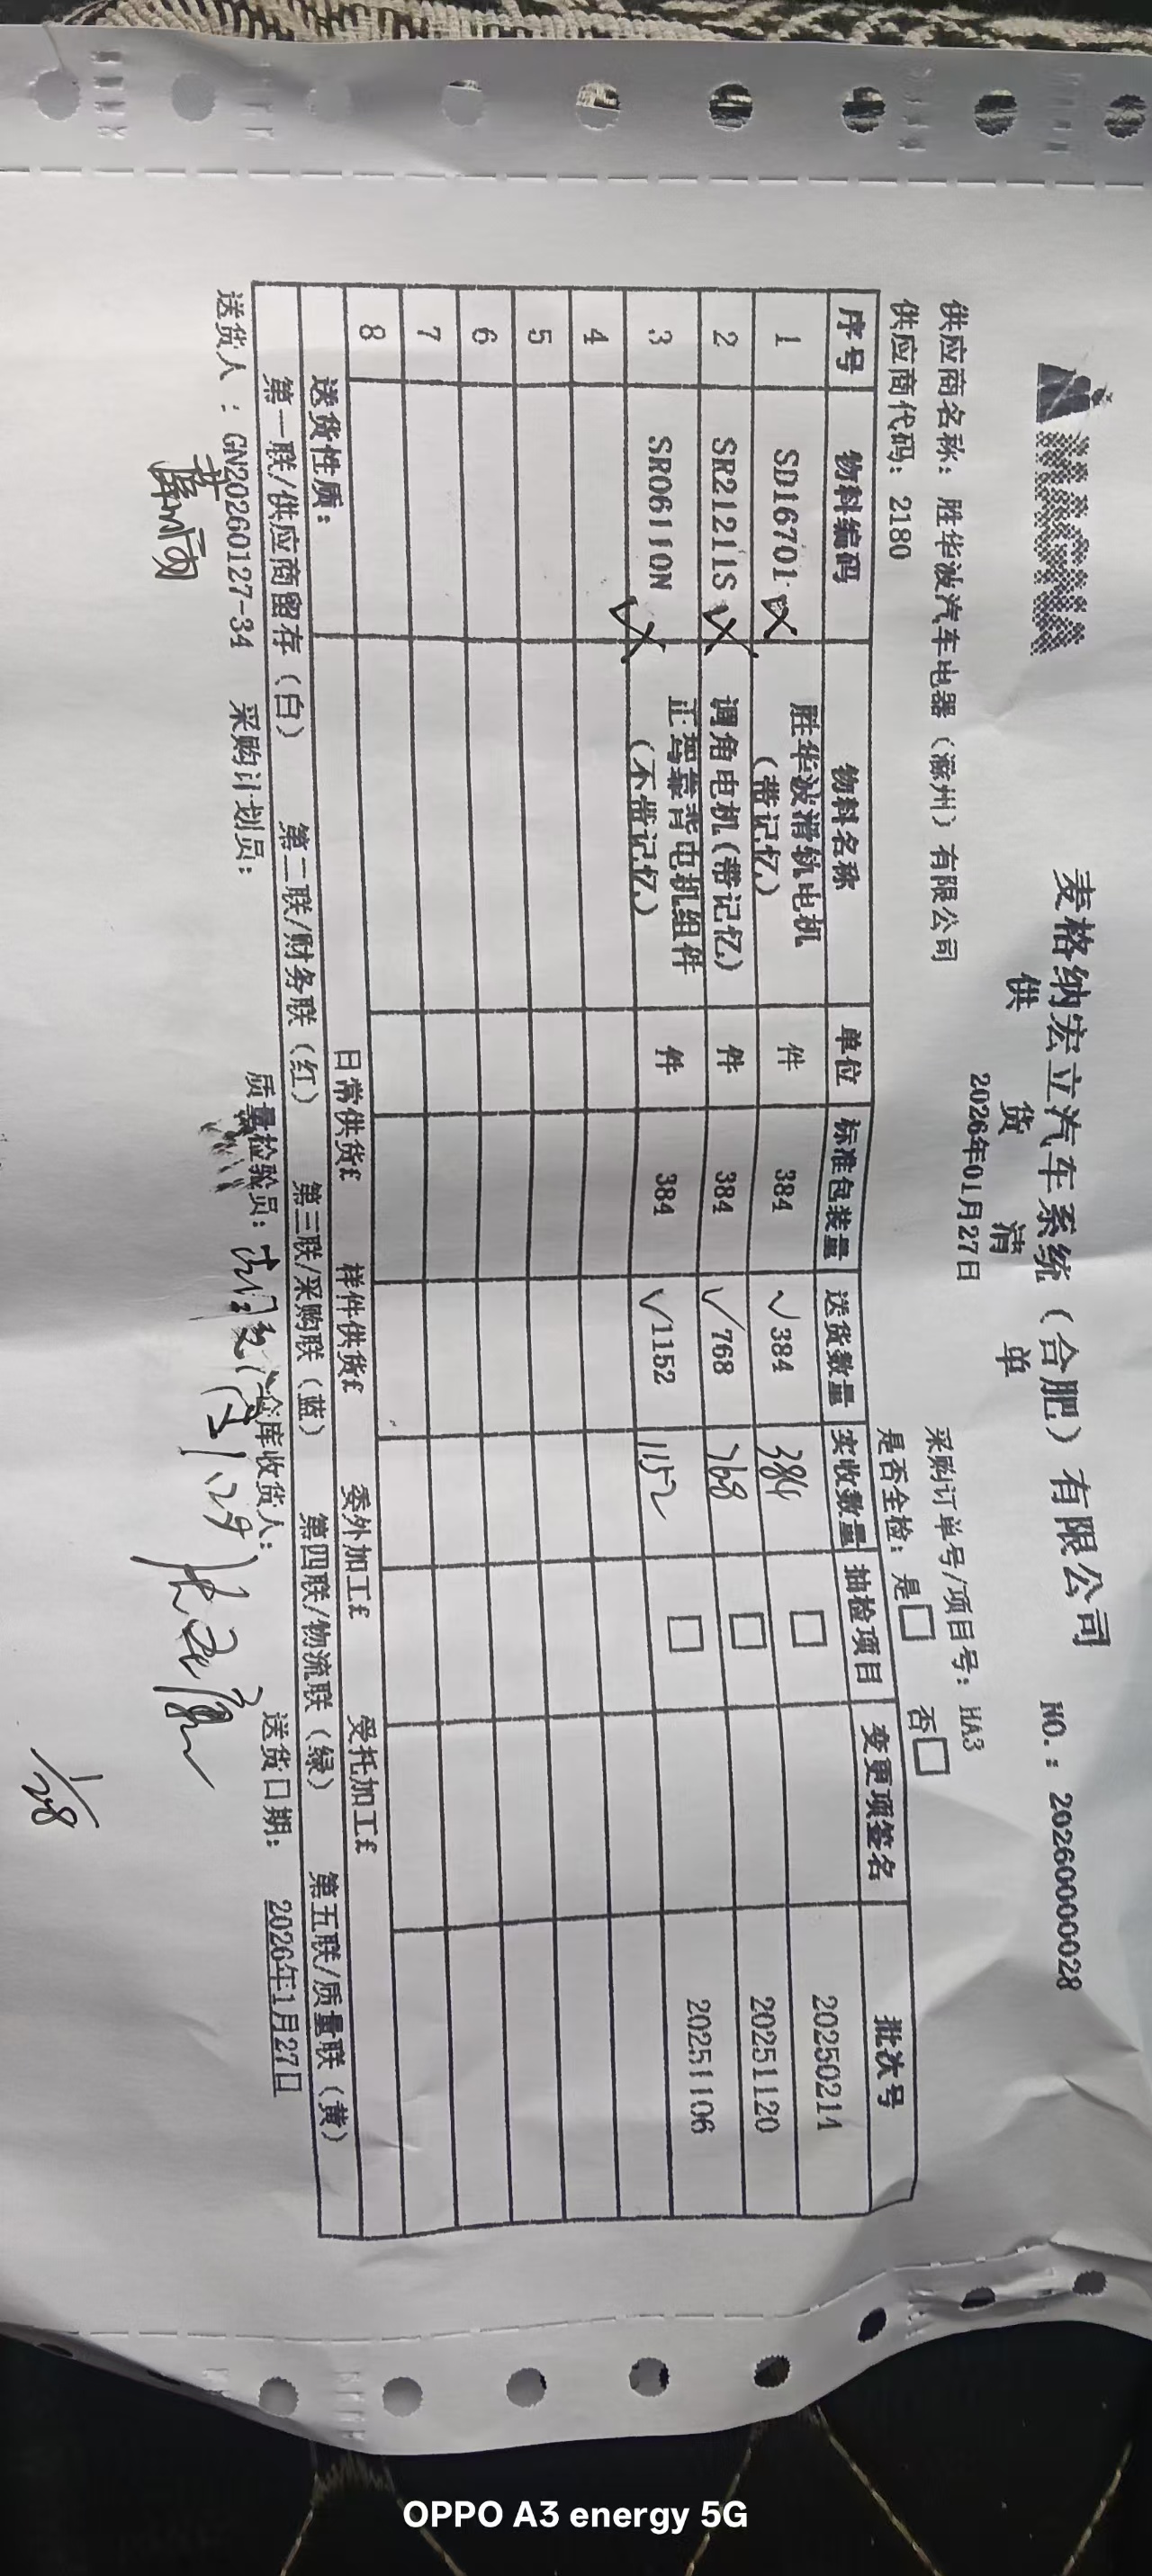 麦格纳宏立汽车系统（合肥）有限公司
供 货 清 单
NO.：20260000028
2026年01月27日
供应商名称：胜华波汽车电器（滁州）有限公司
采购订单号/项目号：HA3
供应商代码：2180
是否全检：是□ 否□
序号 物料编码 物料名称 单位 标准包装量 送货数量 实收数量 抽检项目 变更项签名 批次号
1 SD16701 胜华波滑轨电机（带记忆） 件 384 ✓384 384 □ 20250214
2 SR21211S 调角电机(带记忆) 件 384 ✓768 768 □ 20251120
3 SR06110N 正驾靠背电机组件（不带记忆） 件 384 ✓1152 1152 □ 20251106
4
5
6
7
8
送货性质： 日常供货£ 样件供货£ 委外加工£ 受托加工£
第一联/供应商留存（白） 第二联/财务联（红） 第三联/采购联（蓝） 第四联/物流联（绿） 第五联/质量联（黄）
送货人：GN20260127-34 采购计划员： 质量检验员： 仓库收货人： 送货日期：2026年1月27日
1/28
OPPO A3 energy 5G